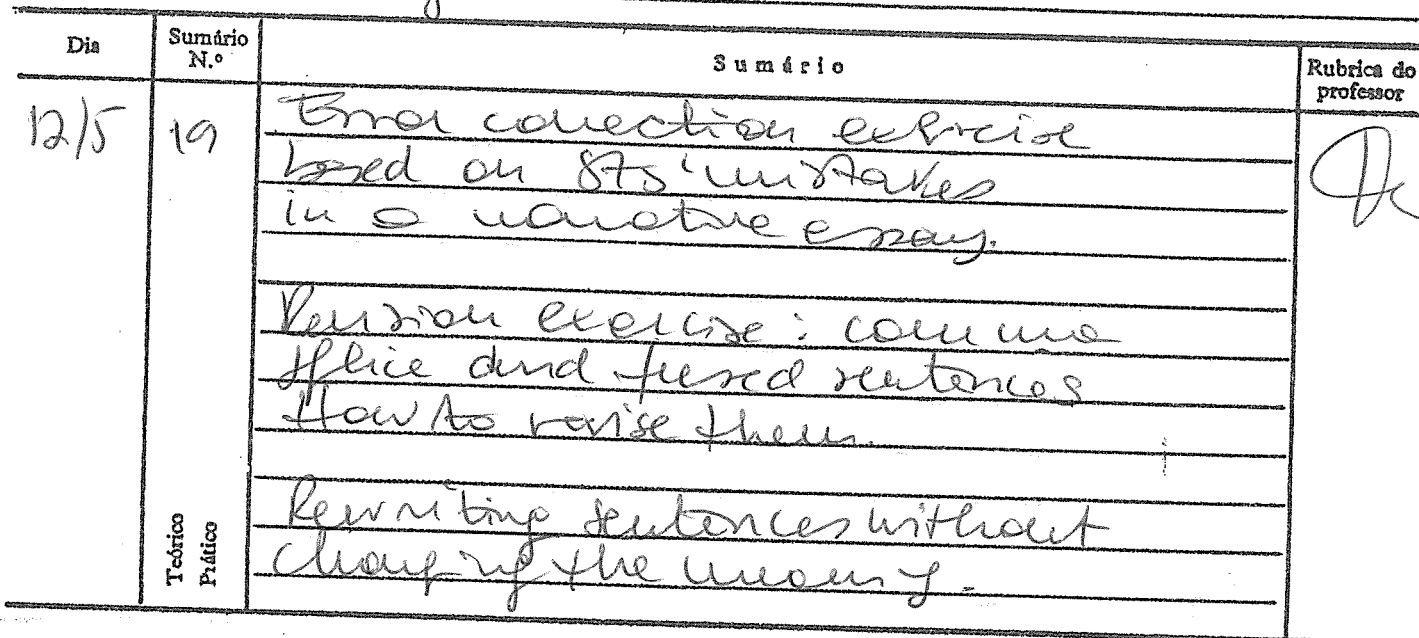 Dia
Sumário N.º
Sumário
Rubrica do professor
12/5
19
Error correction exercise
based on STs' mistakes
in a narrative essay.
Revision exercise: comma
splice and fused sentences
How to revise them.
Rewriting sentences without
changing the meaning.
Teórico
Prático